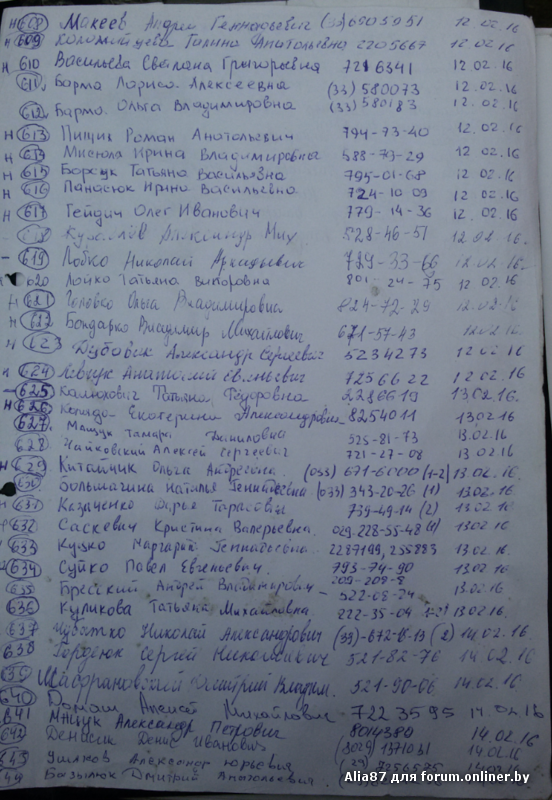 н 608 Макеев Андрей Геннадьевич 12.02.16
н 609 Галина Анатольевна 2205667 12.02.16
н 610 Васильева Светлана Григорьевна 7216341 12.02.16
611 Барма Лариса Алексеевна (33) 580073 12.02.16
612 Барма Ольга Владимировна (33) 580183 12.02.16
н 613 Пищик Роман Анатольевич 794-73-40 12.02.16
н 614 Ирина Владимировна 588-79-29 12.02.16
н 615 Борсук Татьяна Васильевна 795-01-68 12.02.16
н 616 Панасюк Ирина Васильевна 724-10-09 12.02.16
н 617 Гейдич Олег Иванович 779-14-36 12.02.16
618 Александр Мих 528-46-51 12.02.16
- 619 Лобко Николай Аркадьевич 729-33-66 12.02.16
620 Лойко Татьяна 801-24-75 12.02.16
н 621 Головко Ольга Владимировна 824-72-29 12.02.16
н 622 Бондарко Владимир Михайлович 671-57-43 12.02.16
н 623 Дубовик Александр Сергеевич 5234273 12.02.16
н 624 Левчук Анатолий Евгеньевич 7256622 12.02.16
- 625 Татьяна Федоровна 2286619 13.02.16
н 626 Екатерина Александровна 8254011 13.02.16
627 Мащук Тамара Даниловна 525-81-73 13.02.16
628 Чайковский Алексей Сергеевич 721-27-08 13.02.16
н 629 Китайчик Ольга Андреевна (033) 671-6000 (1-2) 13.02.16
630 Большагина Наталья Геннадьевна (033) 343-20-26 (1) 13.02.16
н 631 Казаченко Дарья Тарасовна 739-49-14 (2) 13.02.16
632 Саскевич Кристина Валерьевна. 029-228-55-48 (1) 13.02.16
н 633 Куцко Маргарита Геннадьевна 2287199, 255883 13.02.16
634 Супко Павел Евгеньевич 793-74-90 13.02.16
209-208-8
635 Андрей Владимирович - 522-08-24 13.02.16
636 Куликова Татьяна Михайловна 222-35-04 1-2 13.02.16
637 Николай Александрович (2) 14.02.16
638 Гордеюк Сергей Николаевич 521-82-76 14.02.16
639 Дмитрий Владим. 521-90-06 14.02.16
640 Михайлович 7223595 14.02.16
641 Мащук Александр Петрович 8014380 14.02.16
642 Денисик Денис Иванович (8029) 1371031 14.02.16
643 Ушаков Александр Юрьевич (29) 14.02.16
Базылюк Дмитрий Анатольевич
Alia87 для forum.onliner.by